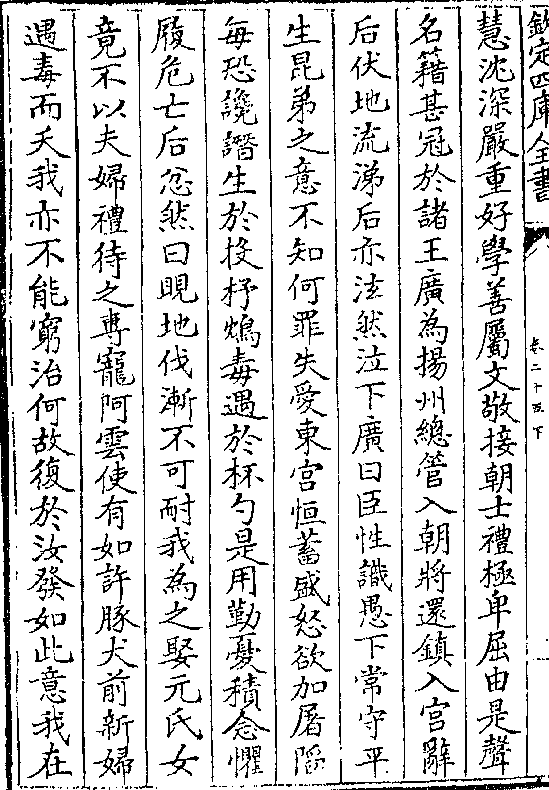 欽定四庫全書
卷二十五下
慧沈深嚴重好學善屬文敬接朝士禮極卑屈由是聲
名籍甚冠於諸王廣為揚州總管入朝將還鎮入宮辭
后伏地流涕后亦泫然泣下廣曰臣性識愚下常守平
生昆弟之意不知何罪失愛東宮恒蓄盛怒欲加屠陷
每恐讒譖生於投杼鴆毒遇於杯勺是用勤憂積念懼
履危亡后忿然曰睍地伐漸不可耐我為之娶元氏女
竟不以夫婦禮待之專寵阿雲使有如許豚犬前新婦
遇毒而夭我亦不能窮治何故復於汝發如此意我在